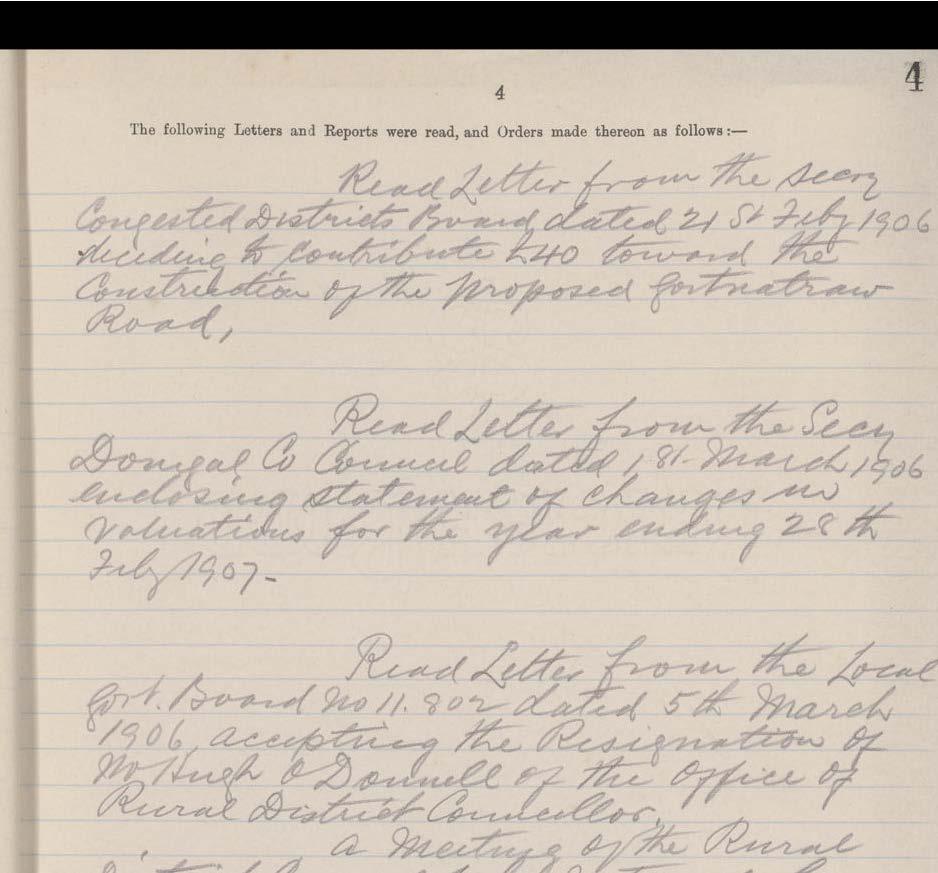 4
4
The following Letters and Reports were read, and Orders made thereon as follows:—
Read Letter from the Secry
Congested Districts Board dated 21 St Feby 1906
deciding to contribute £40 toward the
Construction of the proposed Gortnatraw
Road,
Read Letter from the Secy
Donegal Co Council dated 1 St March 1906
enclosing statement of changes in
valuations for the year ending 28th
Feby 1907-
Read Letter from the Local
Govt. Board No 11.802 dated 5th March
1906 accepting the Resignation of
Mr Hugh O'Donnell of the Office of
Rural District Councillor.
A Meeting of the Rural
District